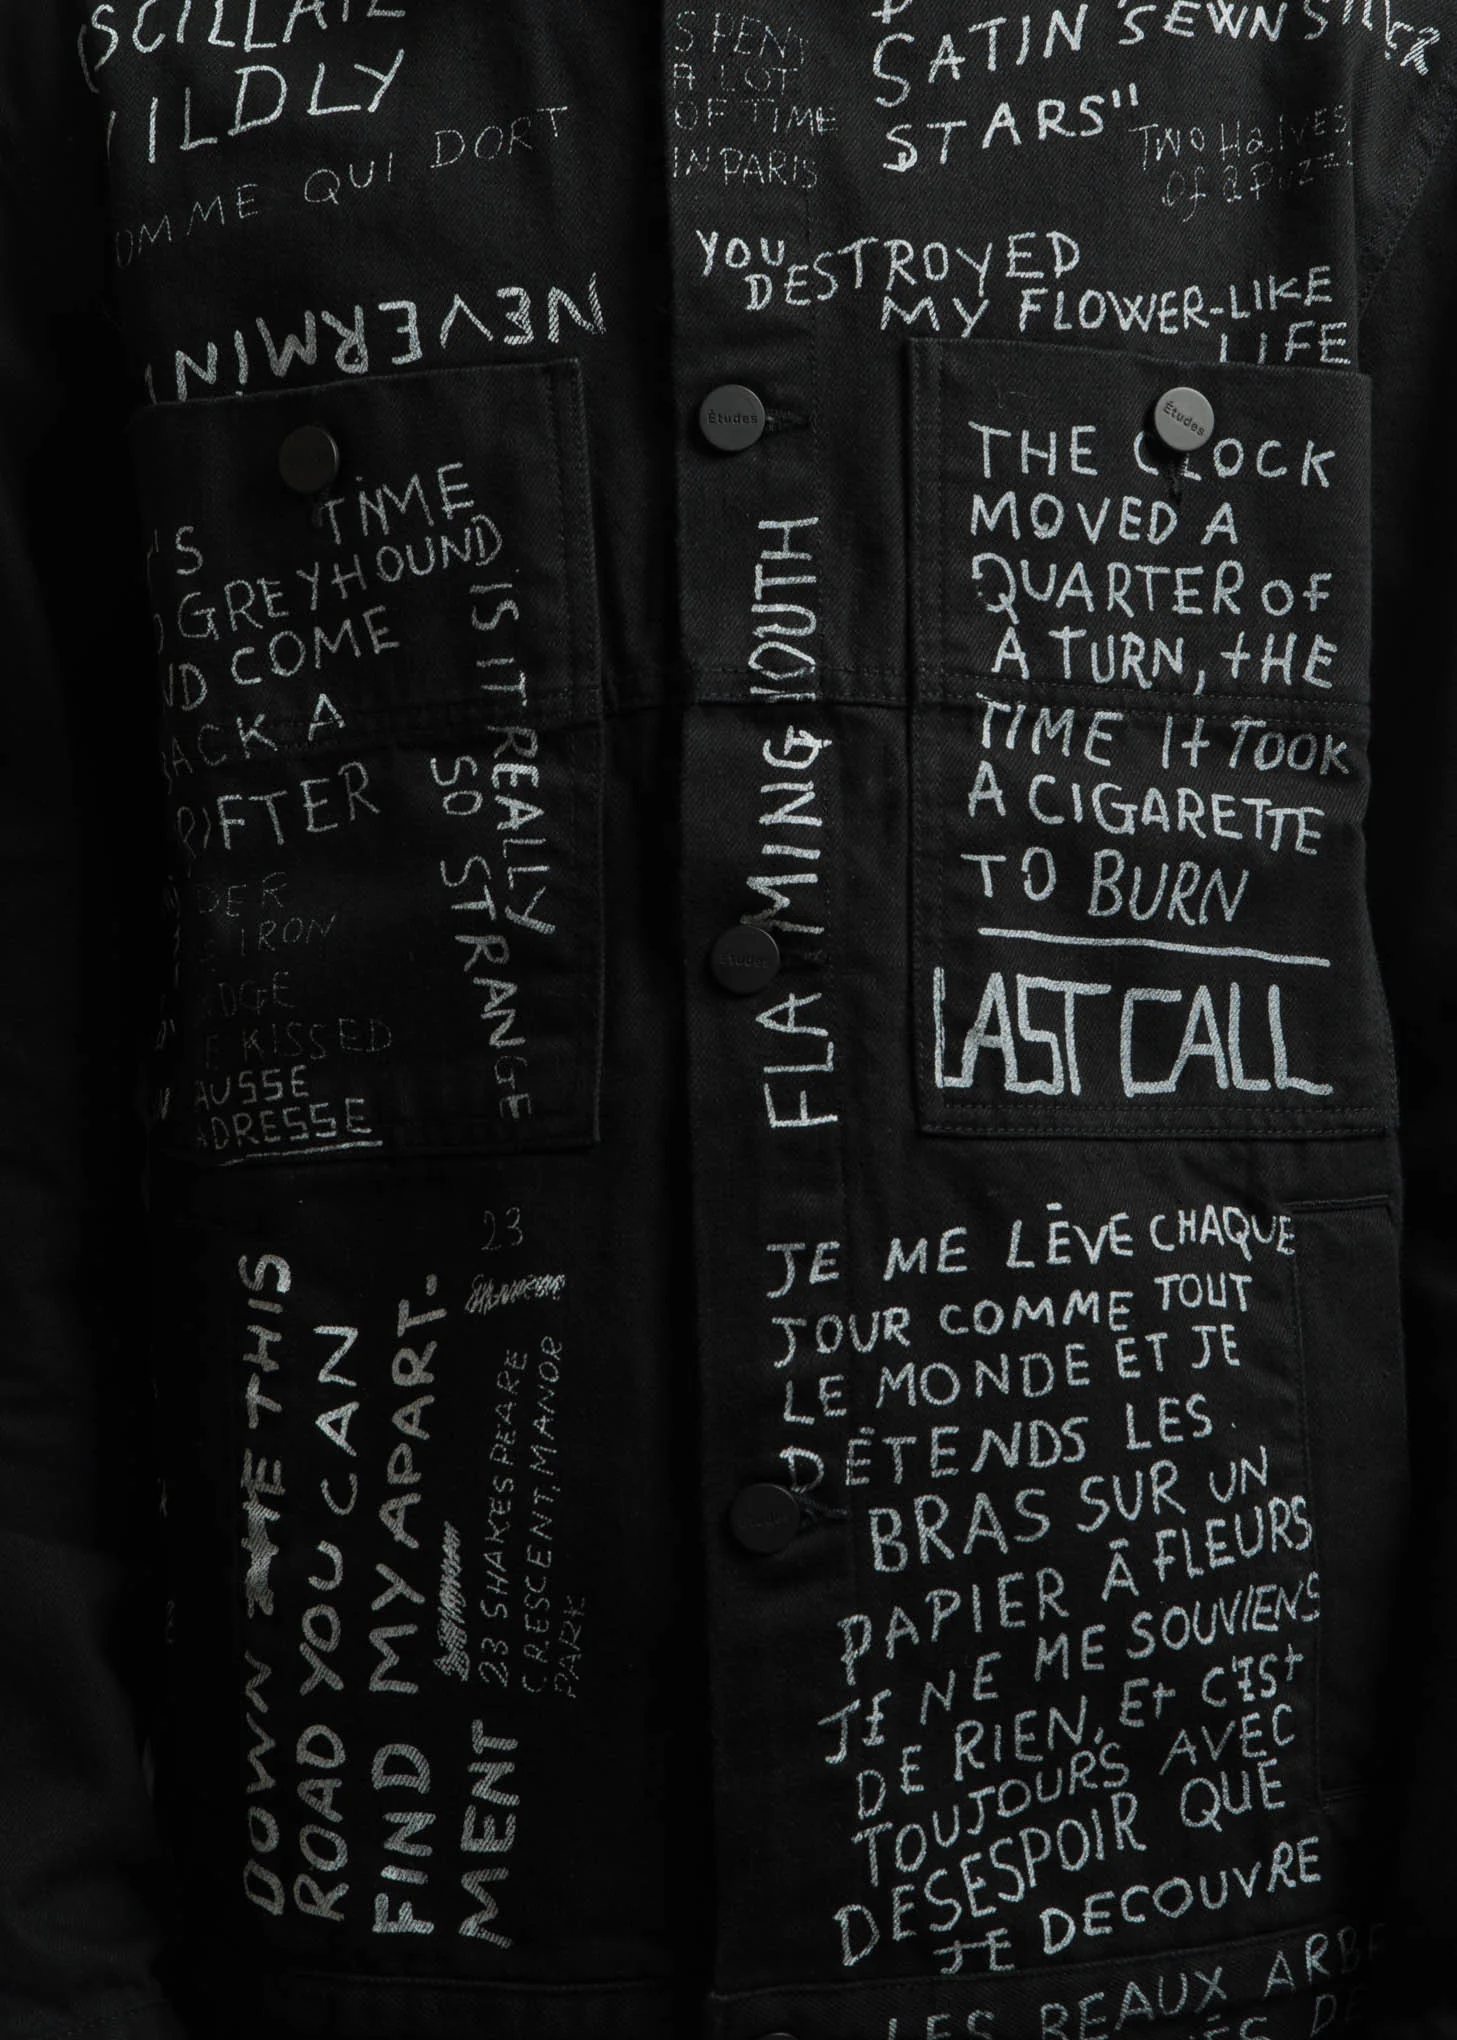 WILDLY
QUI DORT
SPENT
A LOT
OF TIME
IN PARIS
SATIN SEWN SILVER
STARS"
TWO HALVES
OF A
YOU
DESTROYED
MY FLOWER-LIKE
LIFE
TIME
GREYHOUND
COME
A
IS IT REALLY
SO STRANGE
IRON
KISSED
Études
FLAMING YOUTH
Études
Études
THE CLOCK
MOVED A
QUARTER OF
A TURN, tHE
TIME It TOOK
A CIGARETTE
TO BURN
LAST CALL
DOWN THIS
ROAD YOU CAN
FIND MY APART.
MENT
23
23 SHAKESPEARE
CRESCENT, MANOR
PARK
JE ME LĒVE CHAQUE
JOUR COMME TOUT
LE MONDE ET JE
DÉTENDS LES
BRAS SUR UN
PAPIER Ā FLEURS
JE NE ME SOUVIENS
DE RIEN, Et C'ESt
TOUJOURS AVEC
DESESPOIR QUE
JE DECOUVRE
LES BEAUX